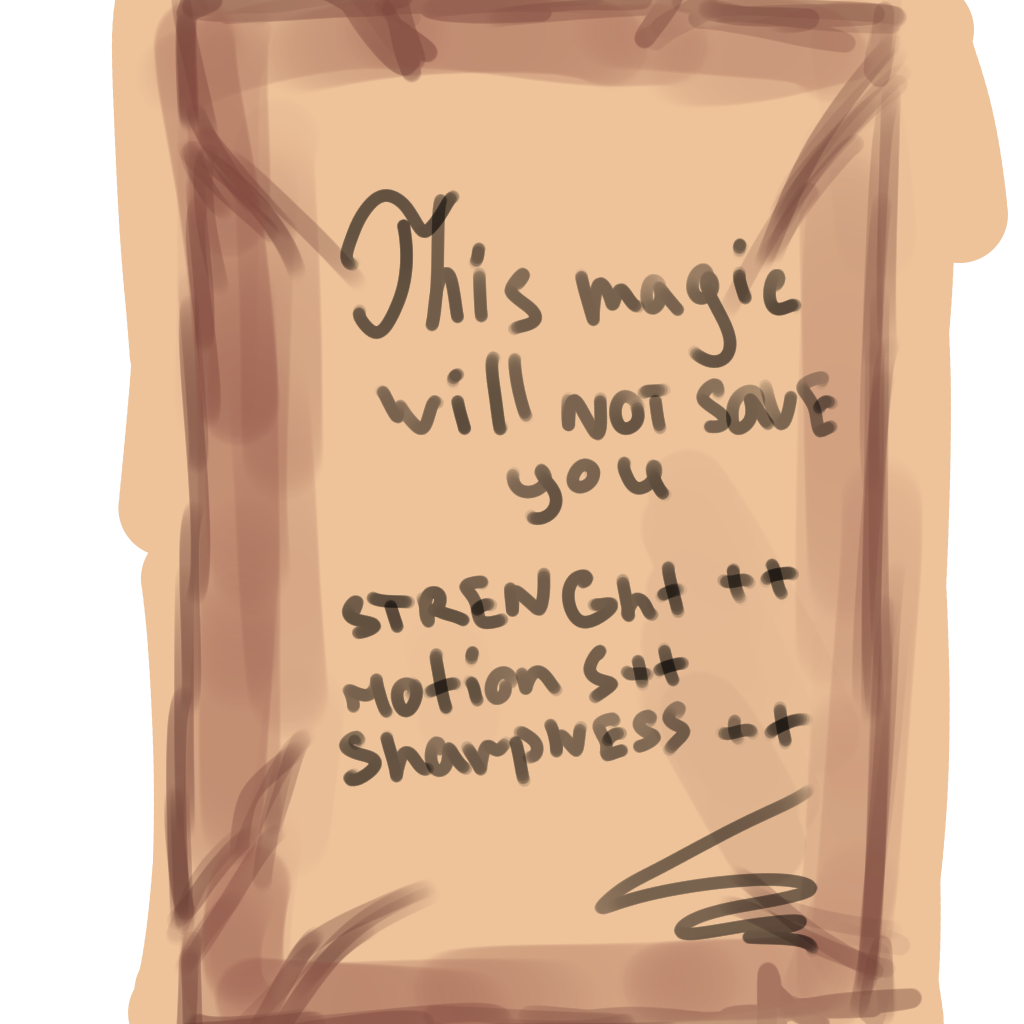 This magic
will NOT SavE
you
STRENGht ++
Motion S++
SharpNESS ++